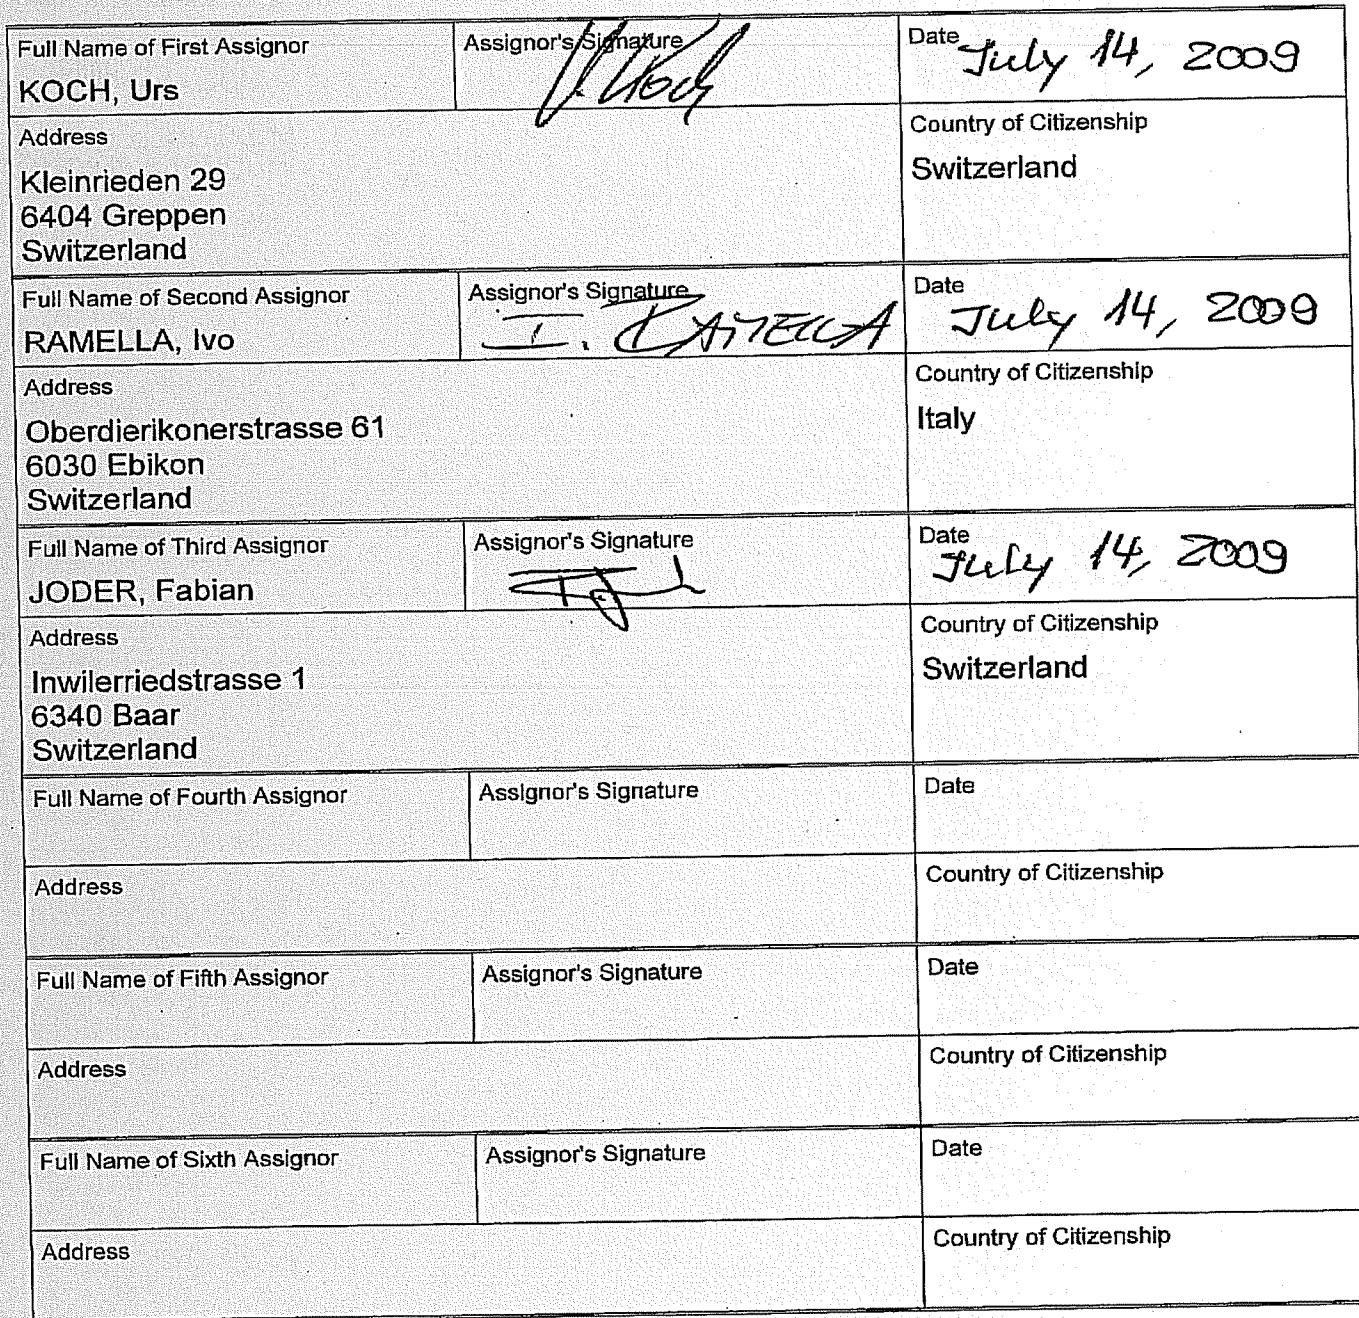 Full Name of First Assignor
KOCH, Urs
Assignor's Signature
U. Koch
Date
July 14, 2009
Address
Kleinrieden 29
6404 Greppen
Switzerland
Country of Citizenship
Switzerland
Full Name of Second Assignor
RAMELLA, Ivo
Assignor's Signature
I. RAMELLA
Date
July 14, 2009
Address
Oberdierikonerstrasse 61
6030 Ebikon
Switzerland
Country of Citizenship
Italy
Full Name of Third Assignor
JODER, Fabian
Assignor's Signature
Date
July 14, 2009
Address
Inwilerriedstrasse 1
6340 Baar
Switzerland
Country of Citizenship
Switzerland
Full Name of Fourth Assignor
Assignor's Signature
Date
Address
Country of Citizenship
Full Name of Fifth Assignor
Assignor's Signature
Date
Address
Country of Citizenship
Full Name of Sixth Assignor
Assignor's Signature
Date
Address
Country of Citizenship